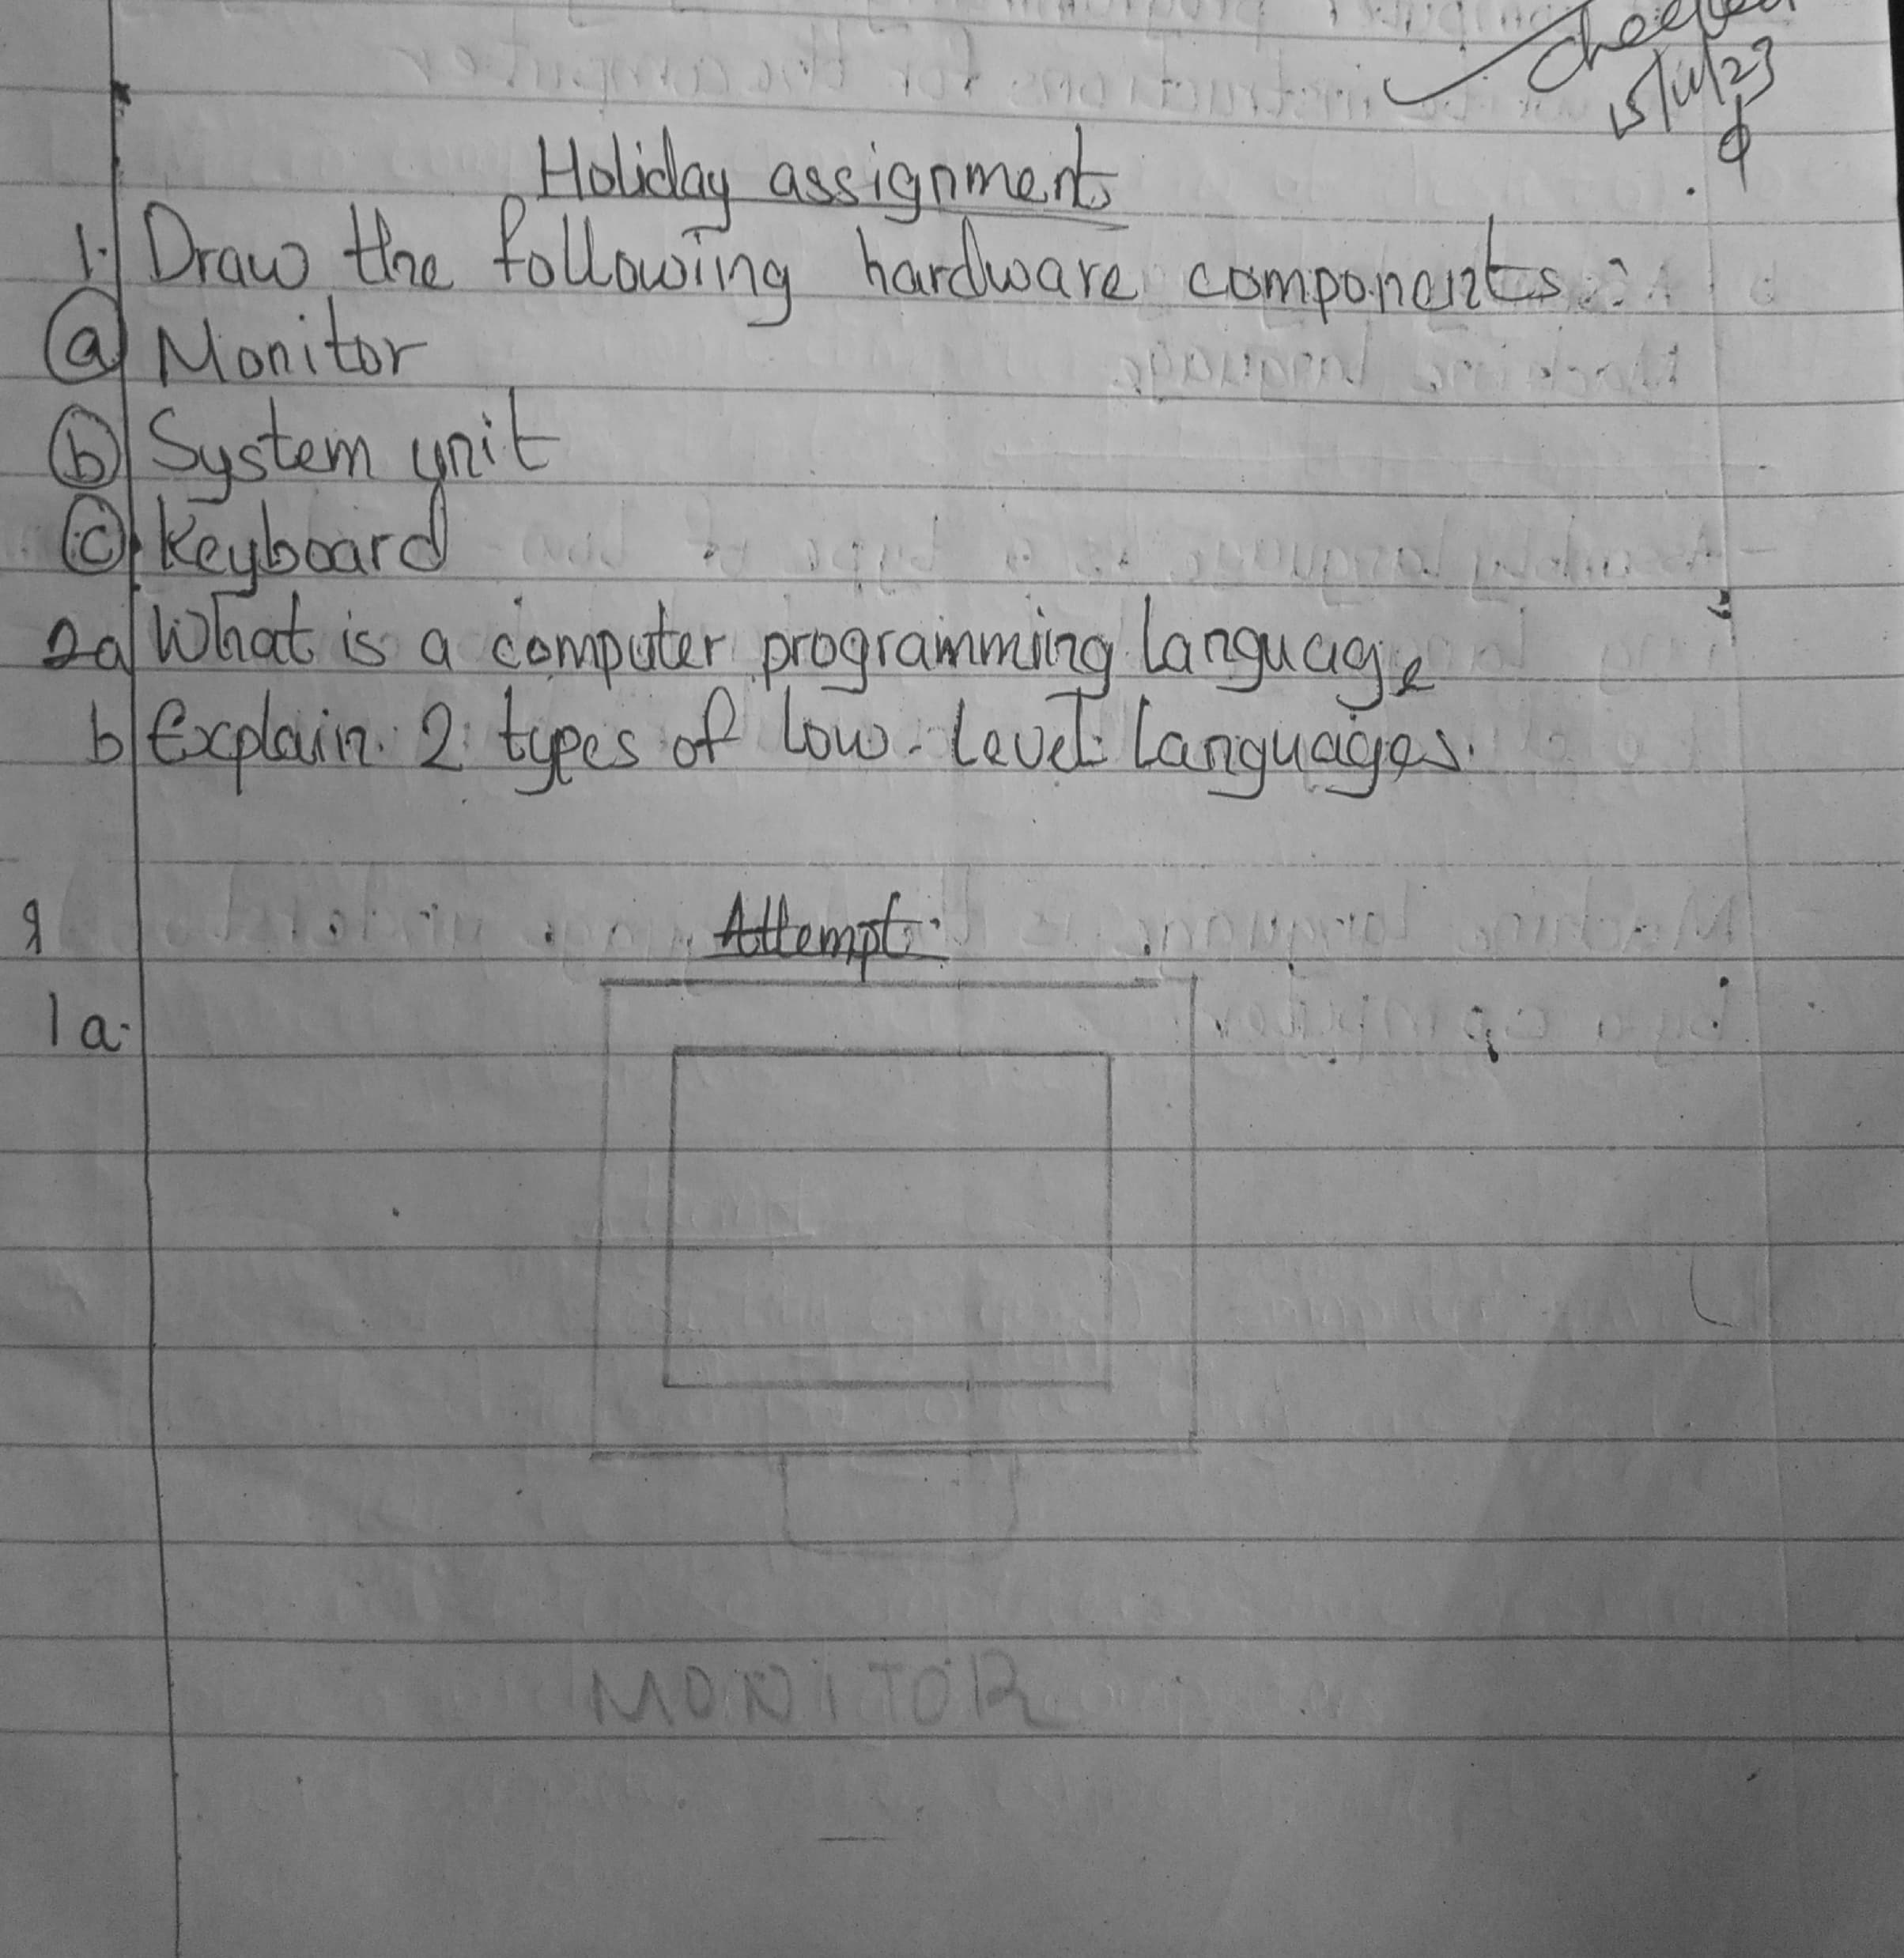 Checked
15/11/23
Holiday assignment
1. Draw the following hardware components:
(a) Monitor
(b) System unit
(c) Keyboard
2a What is a computer programming language
b Explain 2 types of low-level languages.
Attempt
1a.
MONITOR